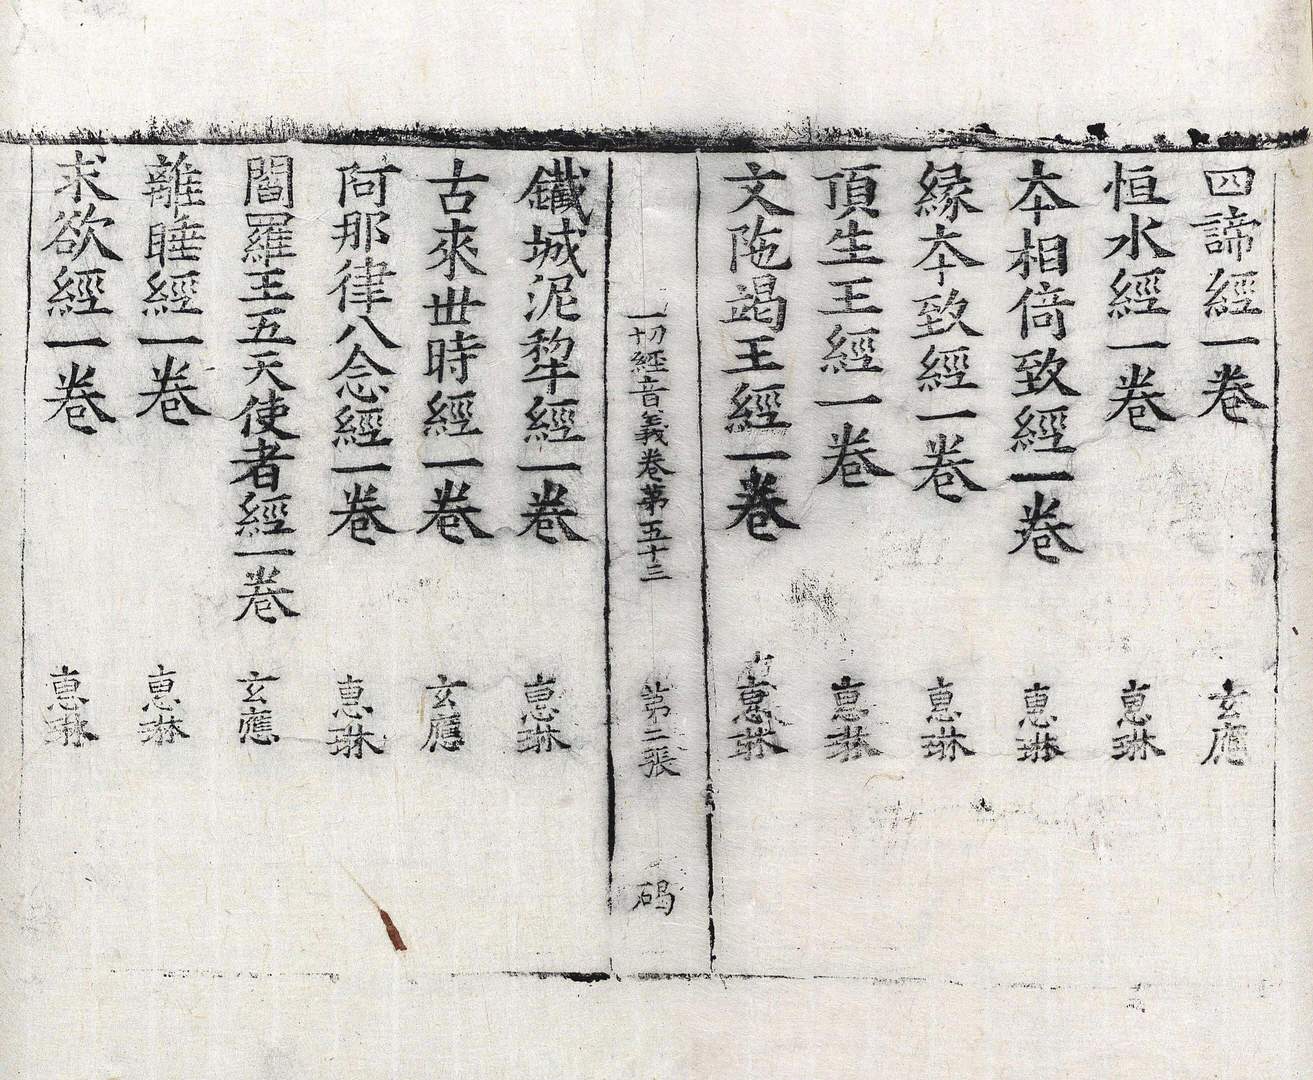 四諦經一卷 玄應
恒水經一卷 惠琳
本相倚致經一卷 惠琳
緣本致經一卷 惠琳
頂生王經一卷 惠琳
文陁竭王經一卷 惠琳
一切經音義卷第五十三 第二張 碣
鐵城泥犂經一卷 惠琳
古來世時經一卷 玄應
阿那律八念經一卷 惠琳
閻羅王五天使者經一卷 玄應
離睡經一卷 惠琳
求欲經一卷 惠琳